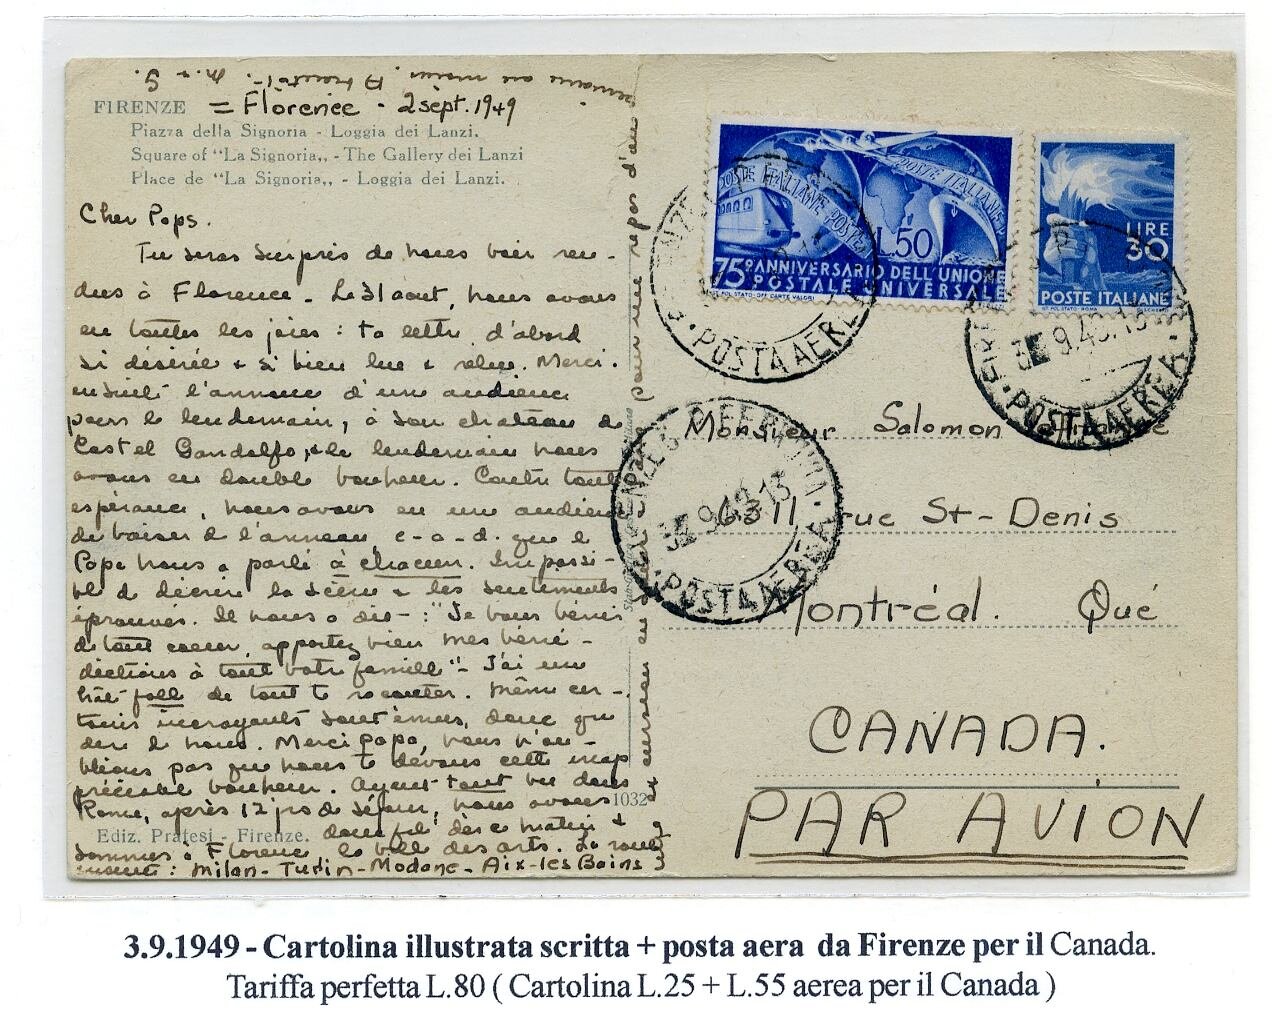 FIRENZE = Florence - 2 sept. 1949
Piazza della Signoria - Loggia dei Lanzi.
Square of "La Signoria„ - The Gallery dei Lanzi
Place de "La Signoria„ - Loggia dei Lanzi.
Cher Pops.
Tu seras surpris de nous voir ren-
dus à Florence - Le 31 aout, nous avons
eu toutes les joies : ta lettre d'abord
si désirée & si bien lue & relue. Merci.
ensuite l'annonce d'une audience
pour le lendemain, à son château de
Castel Gandolfo, & le lendemain nous
avons eu double bonheur. Contre toute
espérance, nous avons eu une audience
de baiser de l'anneau, c-a-d. que le
Pape nous a parlé à chacun. Impossi-
ble de décrire la scène & les sentiments
éprouvés. Il nous a dit - : "Je vous bénis
de tout coeur, apportez bien mes béné-
dictions à toute votre famille" - J'ai une
hâte folle de tout te raconter. Même cer-
tains incroyants sont émus, donc que
dire de nous. Merci papa, nous n'ou-
blions pas que nous te devons cette
bonheur. Ayant tout vu dans
Rome, après 12 jrs de séjour, nous avons
donc filé dès ce matin &
sommes à Florence la ville des arts. La route
ensuite : Milan - Turin - Modane - Aix-les Bains
pour une repos d'un
1032
Ediz. Pratesi - Firenze.
POSTE ITALIANE POSTE
POSTE ITALIANE
L.50
75º ANNIVERSARIO DELL'UNIONE
POSTALE UNIVERSALE
IST. POL. STATO - OFF. CARTE VALORI
LIRE
30
POSTE ITALIANE
IST. POL. STATO - ROMA
POSTA AEREA
9.49.13
POSTA AEREA
9.49.13
POSTA AEREA
Monsieur Salomon
6311 rue St-Denis
Montréal. Qué
CANADA.
PAR AVION
3.9.1949 - Cartolina illustrata scritta + posta aera da Firenze per il Canada.
Tariffa perfetta L.80 ( Cartolina L.25 + L.55 aerea per il Canada )